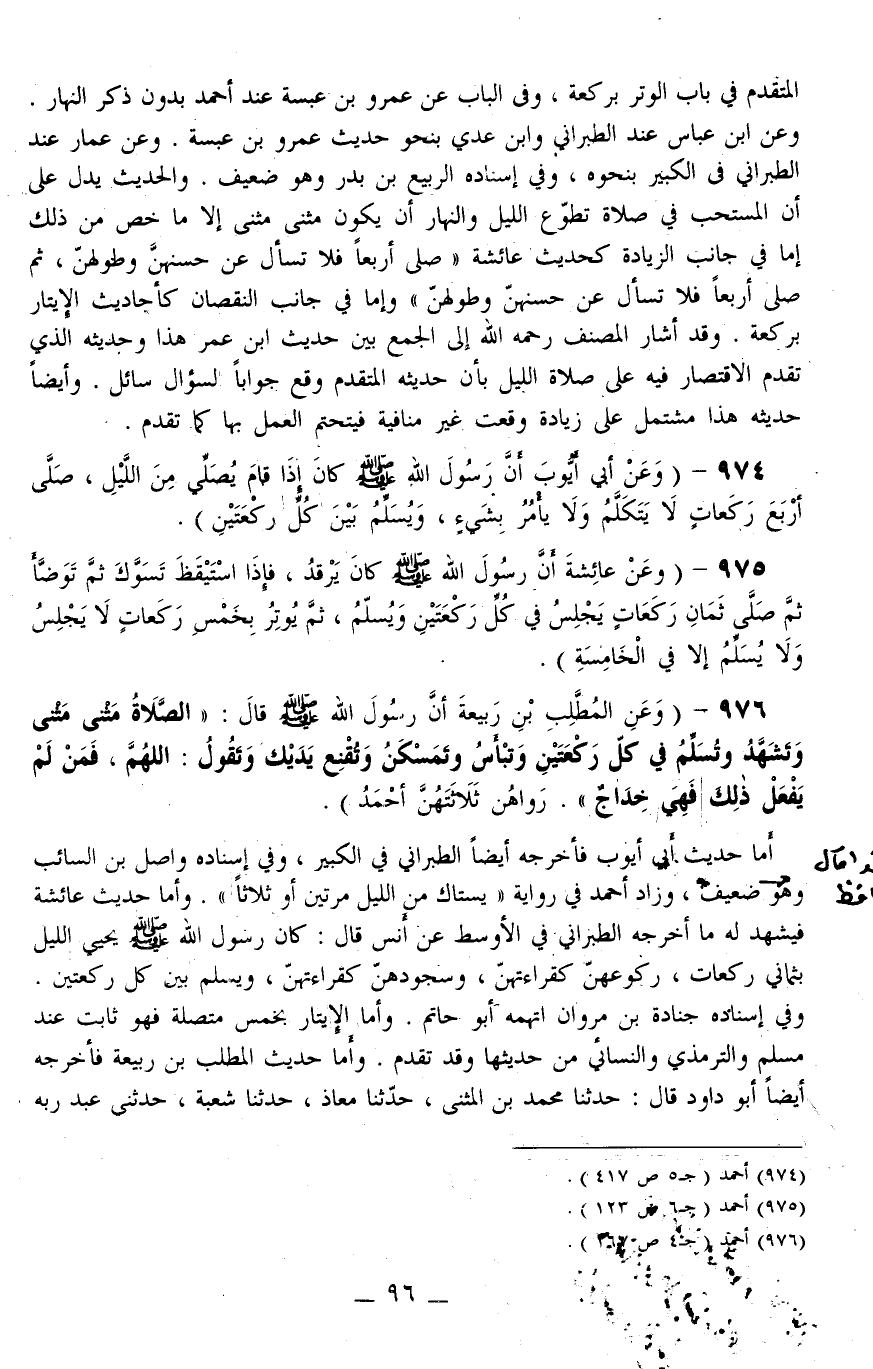 المتقدم في باب الوتر بركعة ، وفى الباب عن عمرو بن عبسة عند أحمد بدون ذكر النهار .
وعن ابن عباس عند الطبراني وابن عدي بنحو حديث عمرو بن عبسة . وعن عمار عند
الطبراني فى الكبير بنحوه ، وفي إسناده الربيع بن بدر وهو ضعيف . والحديث يدل على
أن المستحب في صلاة تطوّع الليل والنهار أن يكون مثنى مثنى إلا ما خص من ذلك
إما في جانب الزيادة كحديث عائشة « صلى أربعاً فلا تسأل عن حسنهنَّ وطولهنّ ، ثم
صلى أربعاً فلا تسأل عن حسنهنّ وطولهنّ » وإما في جانب النقصان كأحاديث الإيتار
بركعة . وقد أشار المصنف رحمه الله إلى الجمع بين حديث ابن عمر هذا وحديثه الذي
تقدم الاقتصار فيه على صلاة الليل بأن حديثه المتقدم وقع جواباً لسؤال سائل . وأيضاً
حديثه هذا مشتمل على زيادة وقعت غير منافية فيتحتم العمل بها كما تقدم .
٩٧٤ – ( وَعَنْ أبي أَيُّوبَ أَنَّ رَسُولَ اللهِ ﷺ كانَ إِذَا قامَ يُصَلِّي مِنَ اللَّيْلِ ، صَلَّى
أرْبَعَ رَكَعاتٍ لَا يَتَكَلَّمُ وَلَا يأْمُرُ بِشَيءٍ ، وَيُسَلِّمُ بَيْنَ كُلِّ ركْعَتَيْنِ ) .
٩٧٥ – ( وعَنْ عائِشةَ أَنَّ رسُولَ الله ﷺ كانَ يَرْقدُ ، فإِذَا اسْتَيْقَظَ تَسَوَّكَ ثمَّ تَوَضَّأَ
ثمَّ صَلَّى ثَمَانِ رَكَعَاتٍ يَجْلِسُ في كُلِّ رَكْعَتَيْنِ وَيُسلّمُ ، ثمَّ يُوتِرُ بِخَمْسِ رَكَعاتٍ لَا يَجْلِسُ
وَلَا يُسَلِّمُ إلا في الْخَامِسَةِ ) .
٩٧٦ – ( وَعَنِ المُطَّلِبِ بْنِ رَبِيعةَ أنَّ رسُولَ الله ﷺ قالَ : « الصَّلَاةُ مَثْنى مَثْنى
وَتَشَهَّدُ وتُسَلِّمُ في كلّ رَكْعَتَيْنِ وَتَبْأَسُ وتَمَسْكَنُ وَتُقْنِع يَدَيْك وَتَقُولُ : اللهُمَّ ، فَمَنْ لَمْ
يَفْعَلْ ذٰلِكَ فَهِيَ خِدَاجٌ » . رَواهُن ثَلَاثَتَهُنَّ أحْمَدُ ) .
أما حديث أبي أيوب فأخرجه أيضاً الطبراني في الكبير ، وفي إسناده واصل بن السائب
وهو ضعيف ، وزاد أحمد في رواية « يستاك من الليل مرتين أو ثلاثاً » . وأما حديث عائشة
فيشهد له ما أخرجه الطبراني في الأوسط عن أنس قال : كان رسول الله ﷺ يحيي الليل
بثماني ركعات ، ركوعهنّ كقراءتهنّ ، وسجودهنّ كقراءتهنّ ، ويسلم بين كل ركعتين .
وفي إسناده جنادة بن مروان اتهمه أبو حاتم . وأما الإيتار بخمس متصلة فهو ثابت عند
مسلم والترمذي والنسائي من حديثها وقد تقدم . وأما حديث المطلب بن ربيعة فأخرجه
أيضاً أبو داود قال : حدثنا محمد بن المثنى ، حدّثنا معاذ ، حدثنا شعبة ، حدثنى عبد ربه
(٩٧٤) أحمد ( جـ٥ ص ٤١٧ ) .
(٩٧٥) أحمد ( جـ٦ ص ١٢٣ ) .
(٩٧٦) أحمد ( جـ٤ ص ) .
– ٩٦ –